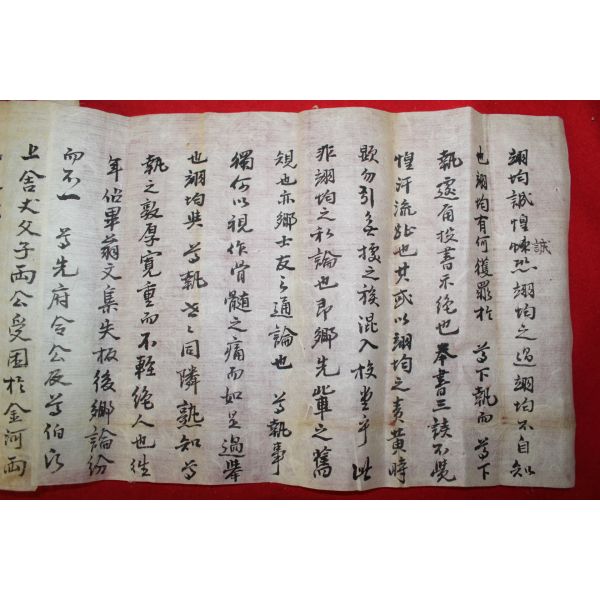 翊均誠惶悚誠恐翊均之過翊均不自知
也翊均有何獲罪於 尊下執而 尊下
執遽爾投書示絶也 奉書三讀不覺
惶汗流趾也其或以翊均之責黃時
題勿引無據之族混入校堂乎 此
非翊均之私論也即鄉先輩之舊
規也亦鄉士友之通論也 尊執事
獨何以視作骨髓之痛而如是過擧
也翊均與 尊執世之同隣熟知尊
執之敦厚寬重而不輕絶人也往
年佔畢翁文集失板後鄉論紛
而不一 尊先府令公及尊伯氏
上舍丈父子兩公受困於金河兩